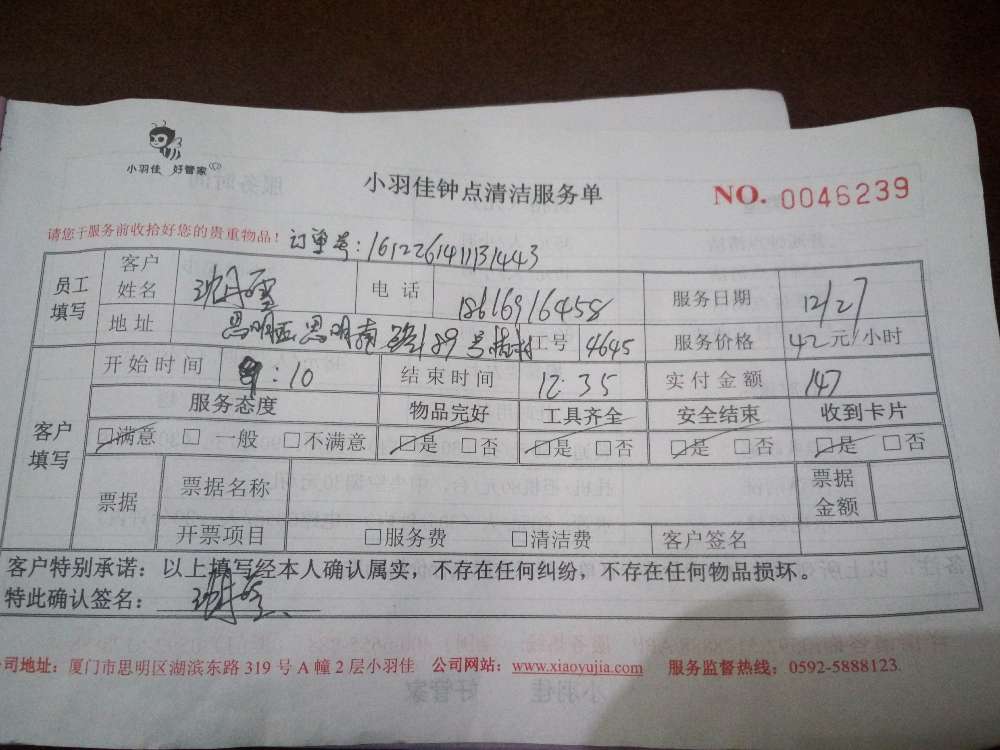 小羽佳 好管家
小羽佳钟点清洁服务单
NO. 0046239
请您于服务前收拾好您的贵重物品!
订单号:1612261411131443
员工填写 客户姓名 电话 18616916458 服务日期 12/27
地址 思明区思明南路189号 工号 4645 服务价格 42元/小时
客户填写 开始时间 9:10 结束时间 12:35 实付金额 147
服务态度 物品完好 工具齐全 安全结束 收到卡片
□满意 □一般 □不满意 □是 □否 □是 □否 □是 □否 □是 □否
票据 票据名称 票据金额
开票项目 □服务费 □清洁费 客户签名
客户特别承诺:以上填写经本人确认属实,不存在任何纠纷,不存在任何物品损坏。
特此确认签名:
公司地址:厦门市思明区湖滨东路 319 号 A 幢 2 层小羽佳 公司网站:www.xiaoyujia.com 服务监督热线:0592-5888123